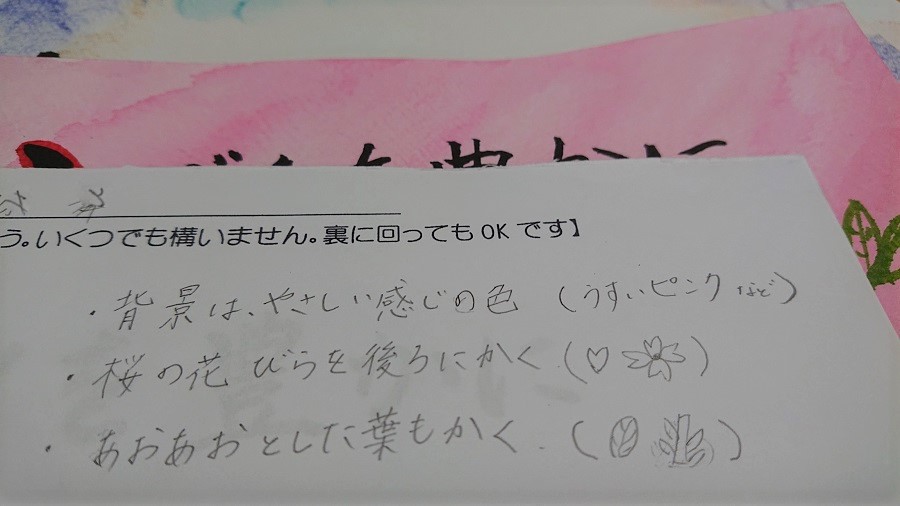 う。いくつでも構いません。裏に回ってもOKです】
・背景は、やさしい感じの色 (うすいピンク など)
・桜の花びらを後ろにかく(♡ )
・あおあおとした葉もかく. ( )